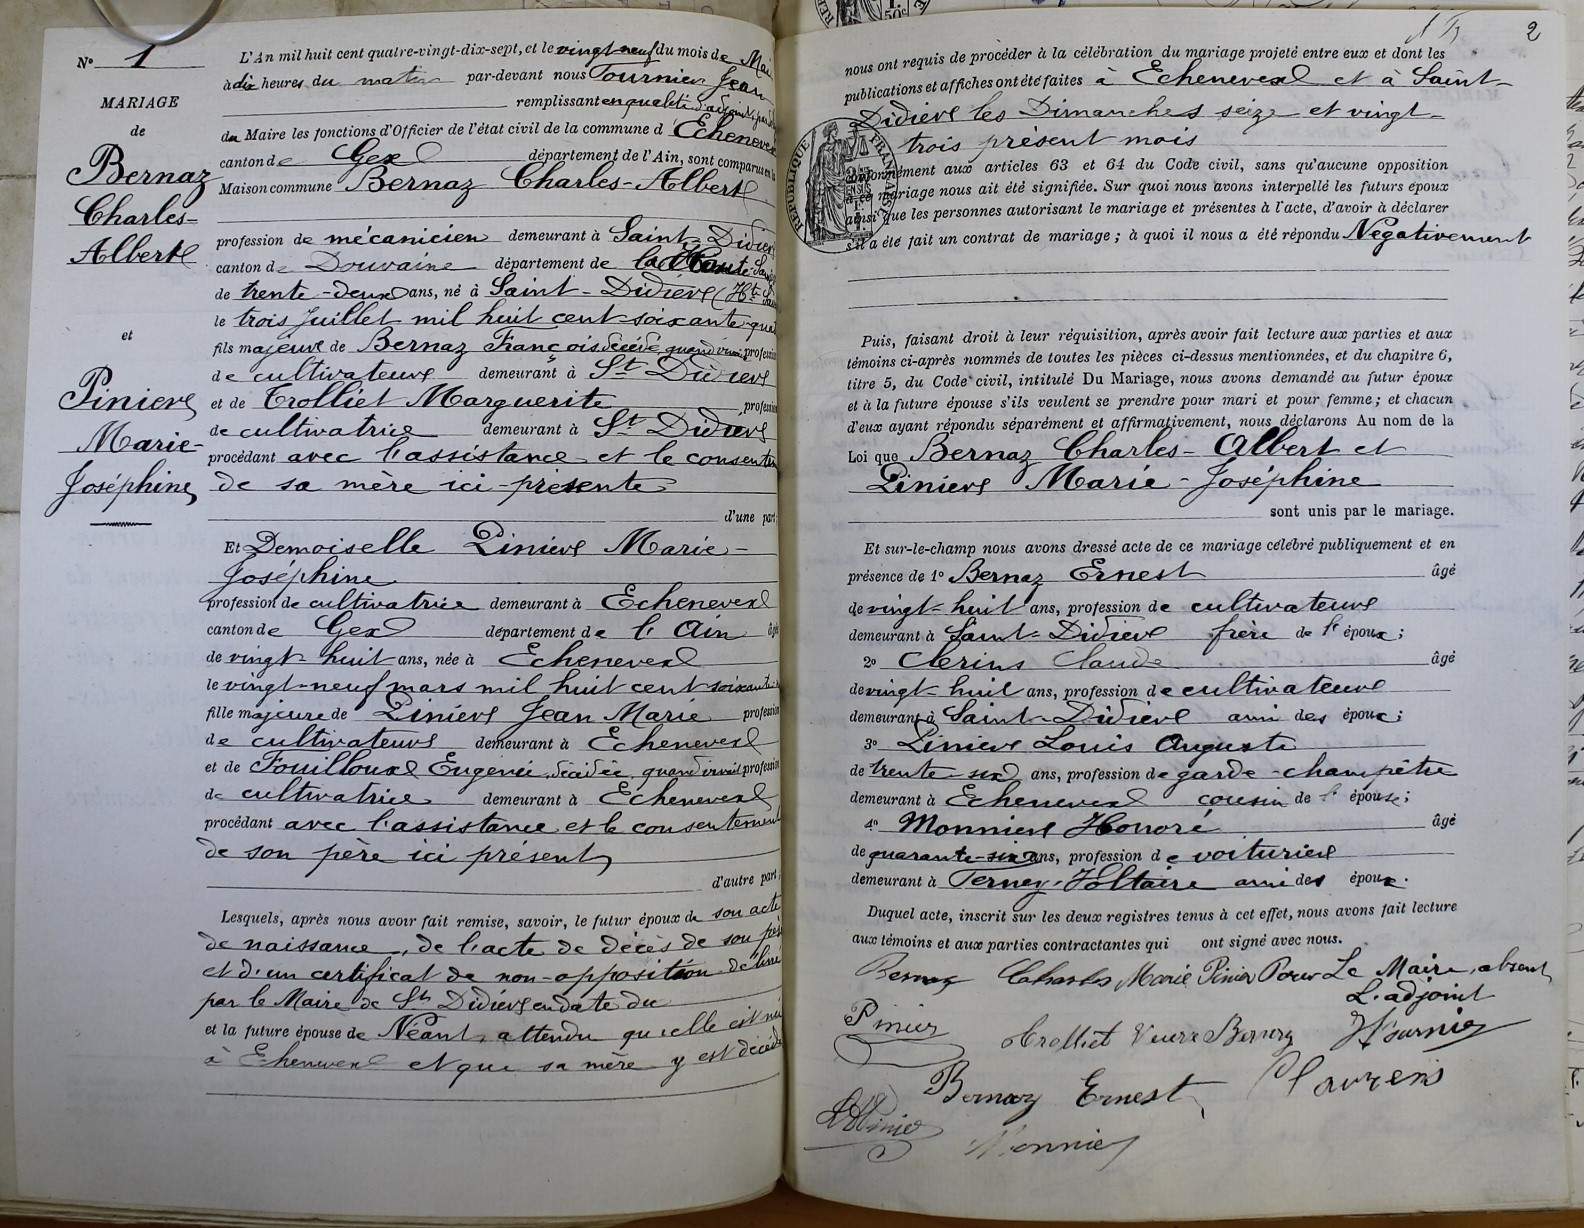 N° 1
MARIAGE
de
Bernaz
Charles-
Albert
et
Pinier
Marie-
Joséphine
L'An mil huit cent quatre-vingt-dix-sept, et le vingt-neuf du mois de Mai
à dix heures du matin par-devant nous Tournier Jean
remplissant en qualité d'adjoint
du Maire les fonctions d'Officier de l'état civil de la commune d'Echenevex
canton de Gex département de l'Ain, sont comparus en la
Maison commune Bernaz Charles-Albert
profession de mécanicien demeurant à Saint-Didier
canton de Douvaine département de la Haute-Savoie
de trente-deux ans, né à Saint-Didier (Hte Savoie
le trois Juillet mil huit cent soixante-quat
fils majeur de Bernaz François décédé quand vivait profession
de cultivateur demeurant à St Didier
et de Trolliet Marguerite profession
de cultivatrice demeurant à St Didier
procédant avec l'assistance et le consentem
de sa mère ici-présente
d'une part;
Et Demoiselle Pinier Marie-
Joséphine
profession de cultivatrice demeurant à Echenevex
canton de Gex département de l'Ain âgé
de vingt-huit ans, née à Echenevex
le vingt-neuf mars mil huit cent soixante-
fille majeure de Pinier Jean Marie profession
de cultivateur demeurant à Echenevex
et de Fouilloux Eugenée, décédée, quand vivait profession
de cultivatrice demeurant à Echenevex
procédant avec l'assistance et le consentement
de son père ici présent
d'autre part;
Lesquels, après nous avoir fait remise, savoir, le futur époux de son acte
de naissance, de l'acte de décès de son père
et d'un certificat de non-opposition délivré
par le Maire de St Didier en date du
et la future épouse de Néant, attendu qu'elle est née
à Echenevex et que sa mère y est décédée
2
nous ont requis de procéder à la célébration du mariage projeté entre eux et dont les
publications et affiches ont été faites à Echenevex et à Saint-
Didier les Dimanches seize et vingt-
trois présent mois
RÉPUBLIQUE FRANÇAISE
conformément aux articles 63 et 64 du Code civil, sans qu'aucune opposition
à ce mariage nous ait été signifiée. Sur quoi nous avons interpellé les futurs époux
ainsi que les personnes autorisant le mariage et présentes à l'acte, d'avoir à déclarer
s'il a été fait un contrat de mariage; à quoi il nous a été répondu Négativement
Puis, faisant droit à leur réquisition, après avoir fait lecture aux parties et aux
témoins ci-après nommés de toutes les pièces ci-dessus mentionnées, et du chapitre 6,
titre 5, du Code civil, intitulé Du Mariage, nous avons demandé au futur époux
et à la future épouse s'ils veulent se prendre pour mari et pour femme; et chacun
d'eux ayant répondu séparément et affirmativement, nous déclarons Au nom de la
Loi que Bernaz Charles-Albert et
Pinier Marie-Joséphine
sont unis par le mariage.
Et sur-le-champ nous avons dressé acte de ce mariage célébré publiquement et en
présence de 1° Bernaz Ernest âgé
de vingt-huit ans, profession de cultivateur
demeurant à Saint-Didier frère de l'époux;
2° Clerins Claude âgé
de vingt-huit ans, profession de cultivateur
demeurant à Saint-Didier ami des époux;
3° Pinier Louis Auguste
de trente-six ans, profession de garde-champêtre
demeurant à Echenevex cousin de l'épouse;
4° Monnier Honoré âgé
de quarante-six ans, profession de voiturier
demeurant à Ferney-Voltaire ami des époux.
Duquel acte, inscrit sur les deux registres tenus à cet effet, nous avons fait lecture
aux témoins et aux parties contractantes qui ont signé avec nous.
Bernaz Charles Marie Pinier Pour Le Maire, absent
L'adjoint
Pinier Trolliet Veuve Bernaz Tournier
Bernaz Ernest
Pinier Monnier